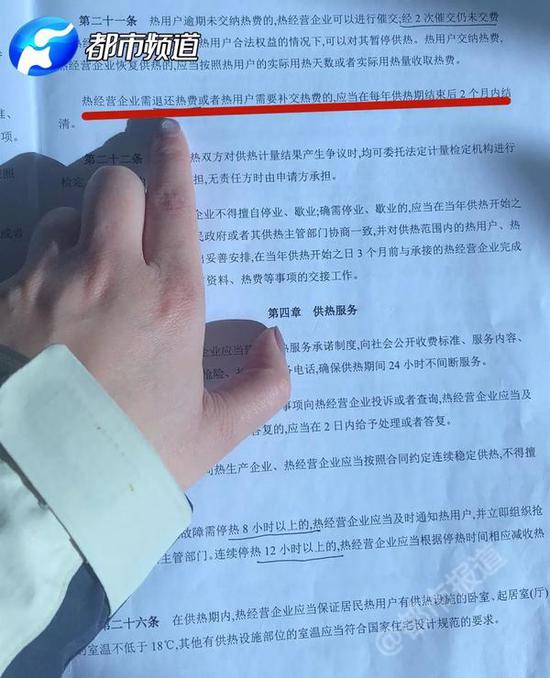 第二十一条 热用户逾期未交纳热费的,热经营企业可以进行催交;经2次催交仍未交费
都市频道
热用户合法权益的情况下,可以对其暂停供热。热用户交纳热费,
企业恢复供热的,应当按照热用户的实际用热天数或者实际用热量收取热费。
热经营企业需退还热费或者热用户需要补交热费的,应当在每年供热期结束后2个月内结
清。
第二十二条 热双方对供热计量结果产生争议时,均可委托法定计量检定机构进行
检定 担,无责任方时由申请方承担。
企业不得擅自停业、歇业;确需停业、歇业的,应当在当年供热开始之
民政府或者其供热主管部门协商一致,并对供热范围内的热用户、热
出妥善安排,在当年供热开始之日3个月前与承接的热经营企业完成
资料、热费等事项的交接工作。
第四章 供热服务
企业应当 热服务承诺制度,向社会公开收费标准、服务内容、
电话,确保供热期间24小时不间断服务。
事项向热经营企业投诉或者查询,热经营企业应当及
答复的,应当在2日内给予处理或者答复。
热生产企业、热经营企业应当按照合同约定连续稳定供热,不得擅
故障需停热8小时以上的,热经营企业应当及时通知热用户,并立即组织抢
主管部门。连续停热12小时以上的,热经营企业应当根据停热时间相应减收热
第二十六条 在供热期内,热经营企业应当保证居民热用户有供热设施的卧室、起居室(厅)
的室温不低于18℃,其他有供热设施部位的室温应当符合国家住宅设计规范的要求。